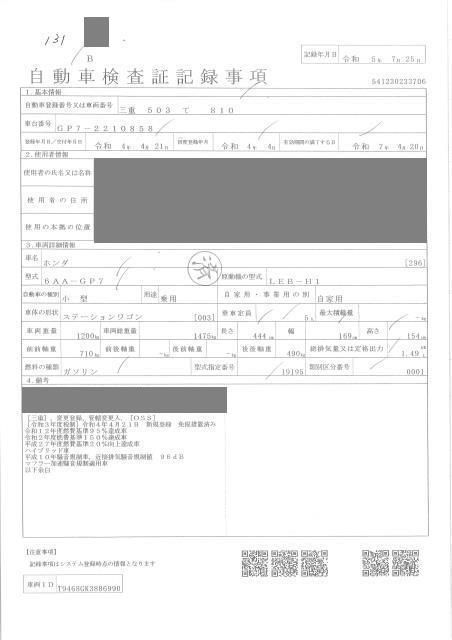 131
B
記録年月日 令和 5年 7月25日
自動車検査証記録事項
541230233706
1.基本情報
自動車登録番号又は車両番号 三重 503 て 810
車台番号 GP7-2210858
登録年月日/交付年月日 令和 4年 4月21日 初度登録年月 令和 4年 4月 有効期間の満了する日 令和 7年 4月20日
2.使用者情報
使用者の氏名又は名称
使用者の住所
使用の本拠の位置
3.車両詳細情報
車名 ホンダ [296]
済
型式 6AA-GP7 原動機の型式 LEB-H1
自動車の種別 小型 用途 乗用 自家用・事業用の別 自家用
車体の形状 ステーションワゴン [003] 乗車定員 5人 最大積載量 -kg
車両重量 1200kg 車両総重量 1475kg 長さ 444cm 幅 169cm 高さ 154cm
前前軸重 710kg 前後軸重 -kg 後前軸重 -kg 後後軸重 490kg 総排気量又は定格出力 1.49L
燃料の種類 ガソリン 型式指定番号 19195 類別区分番号 0001
4.備考
[三重],変更登録,管轄変更入,[OSS]
[令和3年度税制]令和4年4月21日 新規登録 免税措置済み
令和12年度燃費基準95%達成車
令和2年度燃費基準150%達成車
平成27年度燃費基準20%向上達成車
ハイブリッド車
平成10年騒音規制車,近接排気騒音規制値 96dB
マフラー加速騒音規制適用車
以下余白
【注意事項】
記録事項はシステム登録時点の情報となります
車両ID T9468GK3886990